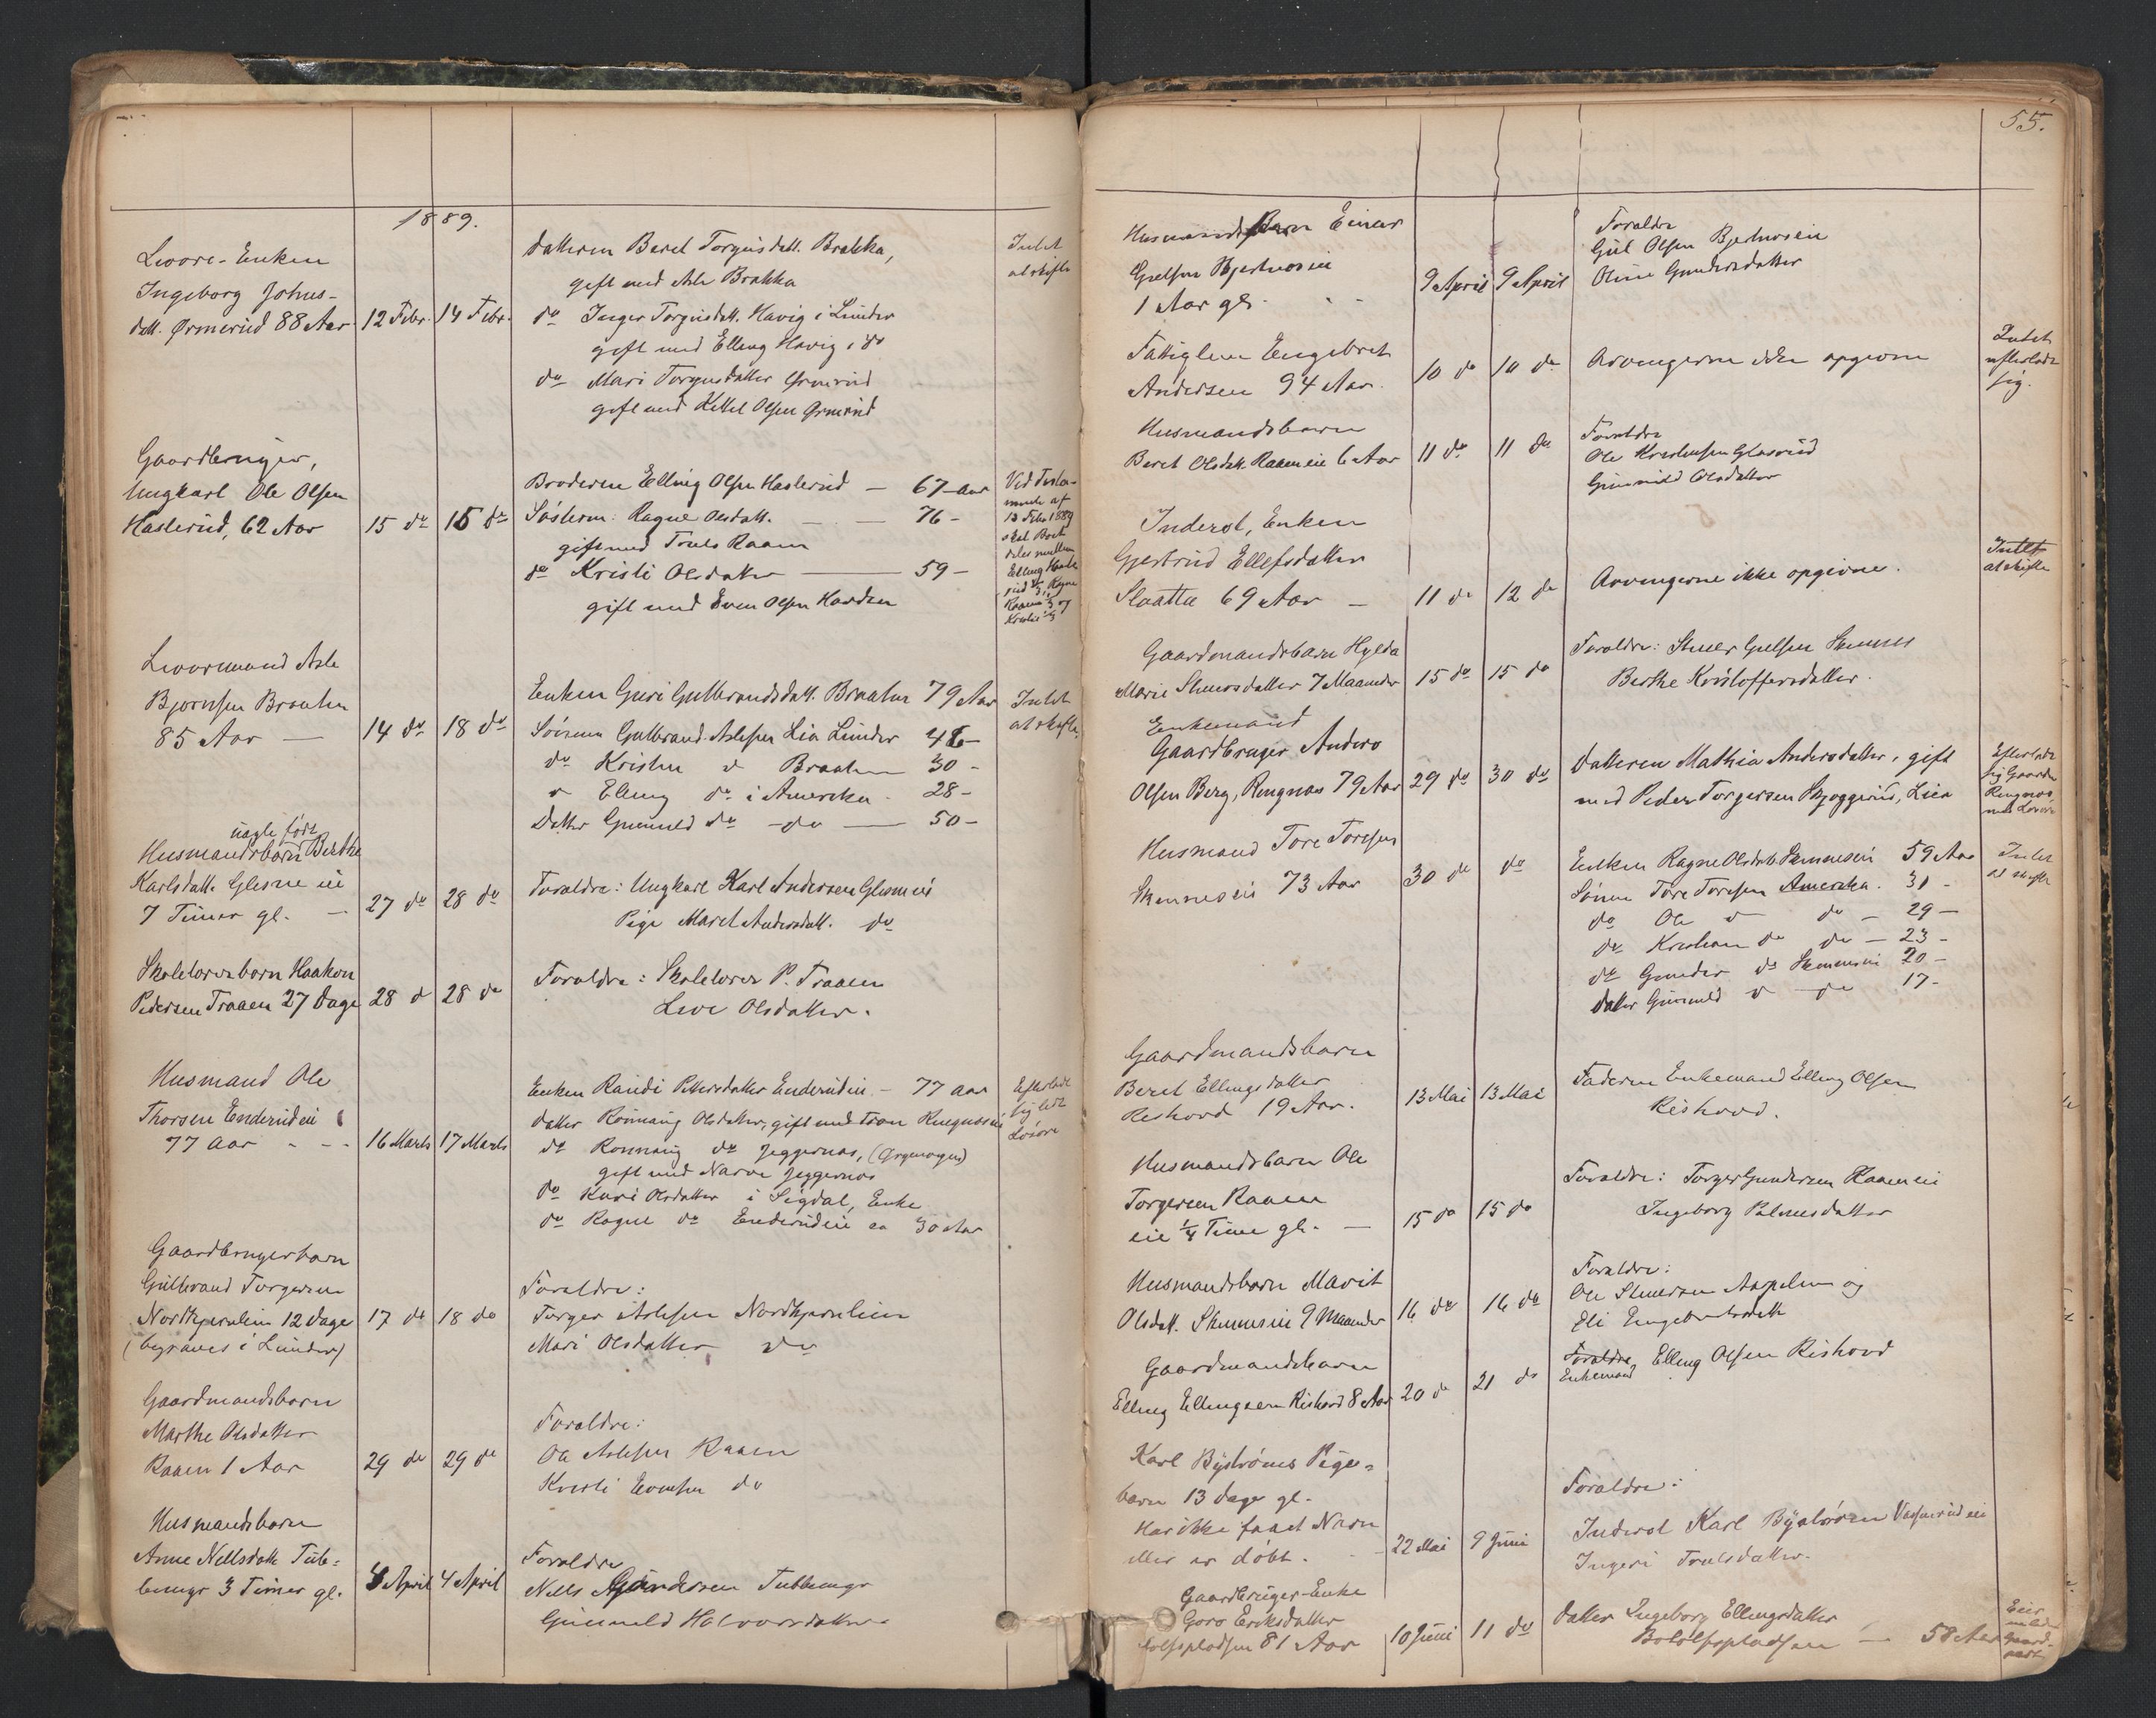 1889.
Levore-Enken
Ingeborg Johns-
datt. Ørmerud 88 Aar
12 Febr. 14 Febr.
Datteren Berel Torgusdatt. Brakka,
gift med Asle Brakka
do Inger Torgusdatt. Havig i Lunder
gift med Elling Havig i do
do Mari Torgusdatter Ørmerud
gift med Kittel Olsen Ørmerud
Intet
at skifte
Gaardbruger,
Ungkarl Ole Olsen
Haslerud, 62 Aar
15 do 15 do
Broderen Elling Olsen Haslerud — 67 Aar
Søsteren Ragne Olsdatt. — — 76 -
gift med Truls Raaen
do Kristi Olsdatter — 59 -
gift med Even Olsen
Ved Testa-
mente af
13 Febr 1889
skal Boet
deles mellem
Elling
Ragne
Raaen ⅓ og
Kristi ⅓
Levormand Asle
Bjørnsen Braaten
85 Aar —
14 do 18 do
Enken Guri Gulbrandsdatt. Braaten 79 Aar
Sønnen Gulbrand Aslesen Lia Lunder
do Kristen do Braaten 30 -
do Elling do i Amerika 28 -
Datter Gunnild do - do — 50 -
Intet
at skifte.
uægte født
Husmandsbarn Berthe
Karlsdatt. Glesne eie
7 Timer gl. —
27 do 28 do
Foraldre: Ungkarl Karl Andersen Glesneeie
Pige Maret Andersdatt. do
Skolelærerbarn Haakon
Pedersen Traaen 27 Dage
28 do 28 do
Foraldre: Skolelærer P. Traaen
Live Olsdatter.
Husmand Ole
Thorsen Enderudeie
77 Aar - - -
16 Marts 17 Marts
Enken Randi Pettersdatter Enderudeie - 77 Aar
Datter Rønnaug Olsdatter, gift med Tron Ringnæseie
do Rønnaug do Jeggernæs,
gift med Narve Jeggernæs
do Kari Olsdatter i Sigdal, Enke
do Ragne do Enderudeie ca 30 Aar
Efterlod
sig lidt
Løsøre
Gaardbrugerbarn
Gulbrand Torgersen
Nordkjernlien 12 Dage
(begraves i Lunder)
17 do 18 do
Foraldre:
Torger Aslesen Nordkjernlien
Mari Olsdatter do
Gaardmandsbarn
Marthe Olsdatter
Raaen 1 Aar
29 do 29 do
Foraldre:
Ole Aslesen Raaen
Kristi Evensen do
Husmandsbarn
Anne Nellsdatt. Tub-
benge 3 Timer gl.
4 April 4 April
Foraldre
Nells Gundersen Tubbenge
Gunnild Halvorsdatter
55.
Husmandsbarn Einar
Gulsen Bjertnæseie
1 Aar gl.
9 April 9 April
Foraldre
Gul Olsen Bjertnæseie
Oline Gundersdatter
Fattiglem Engebret
Andersen 94 Aar.
10 do 10 do
Arvingerne ikke opgivne
Intet
efterladt
sig.
Husmandsbarn
Beret Olsdatt. Raaen eie 6 Aar
11 do 11 do
Foraldre
Ole Kristensen Glasrud
Gunnild Olsdatter
Inderst, Enken
Gjertrud Ellefsdatter
Slaatta 69 Aar —
11 do 12 do
Arvingerne ikke opgivne.
Intet
at skifte
Gaardmandsbarn Hylda
Marie Steensdatter 7 Maaneder
15 do 15 do
Foraldre: Steen Gulsen
Berthe Kristoffersdatter.
Enkemand
Gaardbruger Anders
Olsen Berg, Ringnæs 79 Aar
29 do 30 do
Datteren Mathia Andersdatter, gift
med Peder Torgersen Skjoggerud, Lien
Efterlod
sig Gaarden
Ringnæs
med Løsøre
Husmand Tore Toresen
Skinneseie 73 Aar
30 do do
Enken Ragne Olsdatt. Skinneseie 59 Aar
Sønnen Tore Toresen Amerika. 31 -
do Ole do do - 29 -
do Kristian do do - 23 -
do Gunder do Skinneseie 20 -
Datter Gunnild do do 17 -
Intet
at skifte
Gaardmandsbarn
Beret Ellingsdatter
Rishovd 19 Aar.
13 Mai 13 Mai
Faderen Enkemand Elling Olsen
Rishovd.
Husmandsbarn Ole
Torgersen Raaen
eie ¼ Time gl. —
15 do 15 do
Foraldre: Torger Gundersen Raaeneie
Ingeborg Palmesdatter
Husmandsbarn Marit
Olsdatt. Skinneseie 9 Maaneder
16 do 16 do
Foraldre:
Ole Steensen Aspelien og
Eli Engebretsdatt.
Gaardmandsbarn
Elling Ellingsen Rishovd 8 Aar
20 do 21 do
Foraldre, Elling Olsen Rishovd
Enkemand
Karl Byströms Pige-
barn 13 Dage gl.
Har ikke faaet Navn
eller er døbt.
22 Mai 9 Juni
Foraldre:
Inderst Karl Byström
Ingeri Trulsdatter.
Gaardbruger-Enke
Goro Eriksdatter
81 Aar
10 Juni 11 do
Datter Ingeborg Ellingsdatter
Bolølfspladsen — 58 Aar
Eier
Gaard-
part